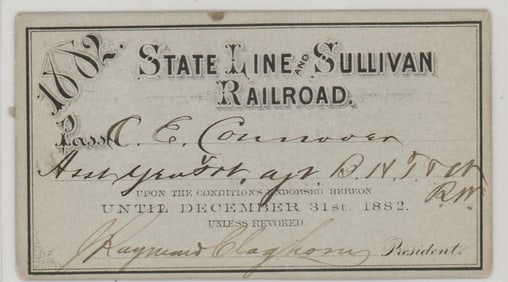 1882.
STATE LINE AND SULLIVAN
RAILROAD.
Pass C. E. Connover
Asst Gen Frt. agt. B. H. T. & W
R.W.
UPON THE CONDITIONS ENDORSED HEREON
UNTIL DECEMBER 31st, 1882.
UNLESS REVOKED.
J Raymond Claghorn President.